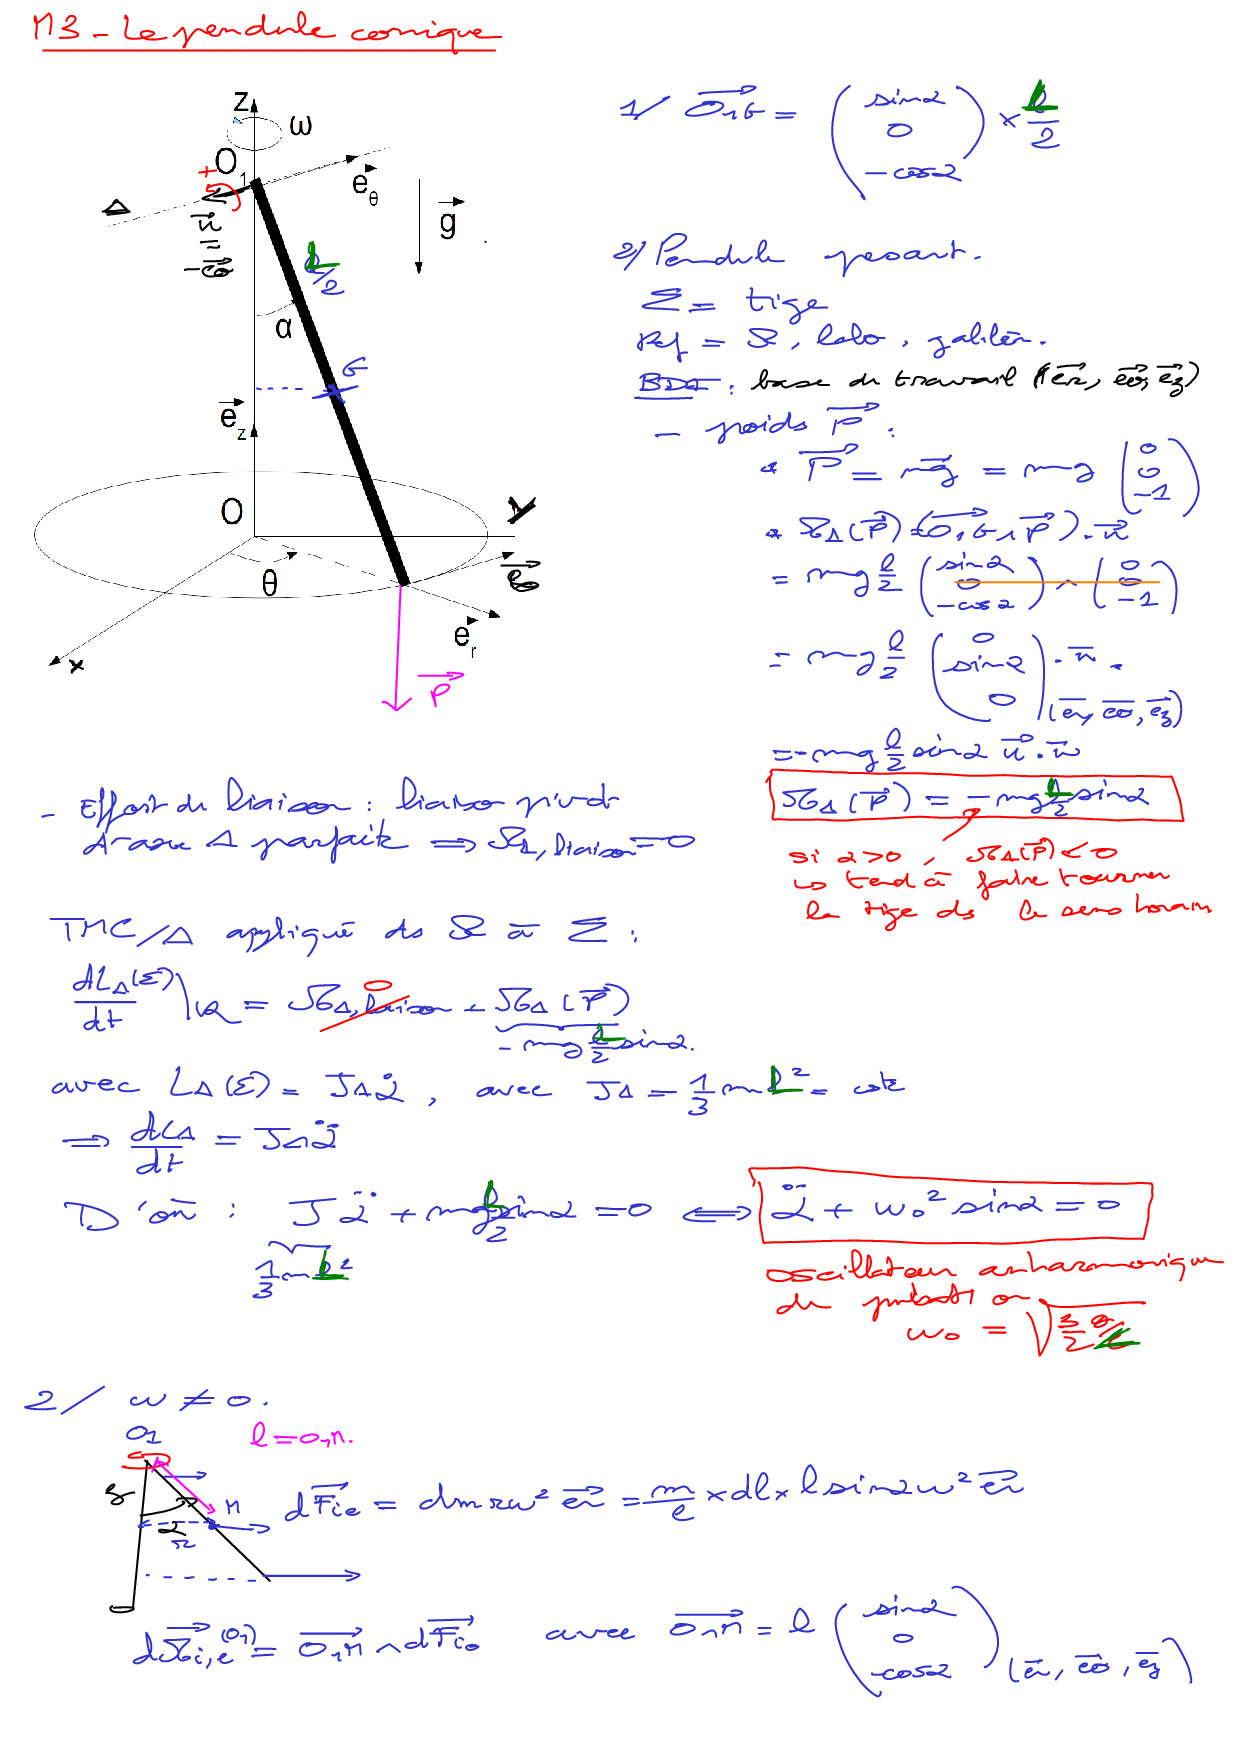 M3 - Le pendule conique
z
ω
O1
+
eθ
Δ
u = -eθ
g
L/2
α
G
ez
O
y
θ
eθ
er
x
P
1/ O1G = (sinα 0 -cosα) × L/2
2/ Pendule pesant.
Σ = tige
Ref = R, labo, galiléen.
BDF : base de travail (er, eθ, ez)
- poids P :
* P = mg = mg (0 0 -1)
* MΔ(P) = (O1G ∧ P) . u
= mg l/2 (sinα 0 -cosα) ∧ (0 0 -1)
= mg l/2 (0 sinα 0) . u (er, eθ, ez)
= -mg l/2 sinα u . u
MΔ(P) = -mg L/2 sinα
si α>0, MΔ(P) < 0
↳ tend à faire tourner
la tige ds le sens horaire
- Effort de liaison : liaison pivot
d'axe Δ parfaite ⟹ MΔ, liaison = 0
TMC/Δ appliqué ds R à Σ :
dLΔ(Σ)/dt)R = MΔ, liaison + MΔ(P)
0
- mg L/2 sinα.
avec LΔ(Σ) = JΔ α̇, avec JΔ = 1/3 mL² = cste
⟹ dLΔ/dt = JΔ α̈
D'où : J α̈ + mg L/2 sinα = 0 ⟺ α̈ + ω0² sinα = 0
1/3 mL²
oscillateur anharmonique
de pulsation
ω0 = √(3/2 g/L)
2/ ω ≠ 0.
O1
l = O1M.
z
M
α
r
dFie = dm rω² er = m/l × dl × l sinα ω² er
dMi,e(O1) = O1M ∧ dFie avec O1M = l (sinα 0 -cosα) (er, eθ, ez)